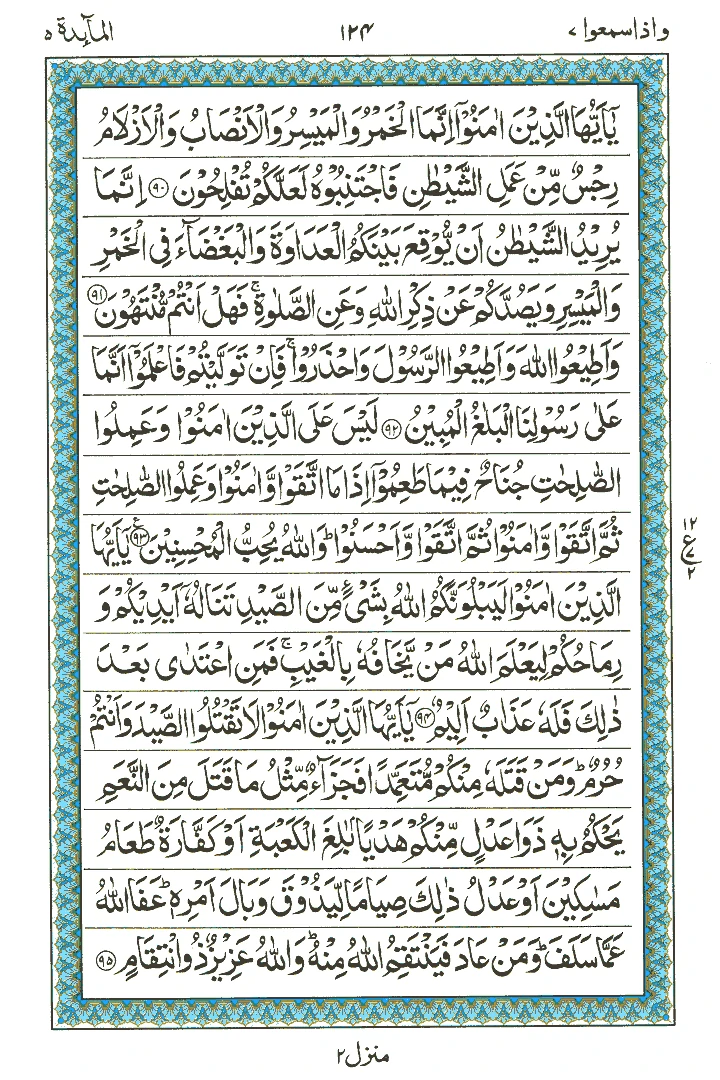 واذاسمعوا ۷ ۱۲۴ المآىِٕدة ۵
یٰۤاَیُّهَا الَّذِیْنَ اٰمَنُوْۤا اِنَّمَا الْخَمْرُ وَالْمَیْسِرُ وَالْاَنْصَابُ وَالْاَزْلَامُ
رِجْسٌ مِّنْ عَمَلِ الشَّیْطٰنِ فَاجْتَنِبُوْهُ لَعَلَّكُمْ تُفْلِحُوْنَ ۝۹۰ اِنَّمَا
یُرِیْدُ الشَّیْطٰنُ اَنْ یُّوْقِعَ بَیْنَكُمُ الْعَدَاوَةَ وَالْبَغْضَآءَ فِی الْخَمْرِ
وَالْمَیْسِرِ وَیَصُدَّكُمْ عَنْ ذِكْرِ اللّٰهِ وَعَنِ الصَّلٰوةِ ۚ فَهَلْ اَنْتُمْ مُّنْتَهُوْنَ ۝۹۱
وَاَطِیْعُوا اللّٰهَ وَاَطِیْعُوا الرَّسُوْلَ وَاحْذَرُوْا ۚ فَاِنْ تَوَلَّیْتُمْ فَاعْلَمُوْۤا اَنَّمَا
عَلٰی رَسُوْلِنَا الْبَلٰغُ الْمُبِیْنُ ۝۹۲ لَیْسَ عَلَی الَّذِیْنَ اٰمَنُوْا وَعَمِلُوا
الصّٰلِحٰتِ جُنَاحٌ فِیْمَا طَعِمُوْۤا اِذَا مَا اتَّقَوْا وَّاٰمَنُوْا وَعَمِلُوا الصّٰلِحٰتِ
ثُمَّ اتَّقَوْا وَّاٰمَنُوْا ثُمَّ اتَّقَوْا وَّاَحْسَنُوْا ؕ وَاللّٰهُ یُحِبُّ الْمُحْسِنِیْنَ ۝۹۳ۧ یٰۤاَیُّهَا
۱۲ ع ۷ ۲
الَّذِیْنَ اٰمَنُوْا لَیَبْلُوَنَّكُمُ اللّٰهُ بِشَیْءٍ مِّنَ الصَّیْدِ تَنَالُهٗۤ اَیْدِیْكُمْ وَ
رِمَاحُكُمْ لِیَعْلَمَ اللّٰهُ مَنْ یَّخَافُهٗ بِالْغَیْبِ ۚ فَمَنِ اعْتَدٰی بَعْدَ
ذٰلِكَ فَلَهٗ عَذَابٌ اَلِیْمٌ ۝۹۴ یٰۤاَیُّهَا الَّذِیْنَ اٰمَنُوْا لَا تَقْتُلُوا الصَّیْدَ وَاَنْتُمْ
حُرُمٌ ؕ وَمَنْ قَتَلَهٗ مِنْكُمْ مُّتَعَمِّدًا فَجَزَآءٌ مِّثْلُ مَا قَتَلَ مِنَ النَّعَمِ
یَحْكُمُ بِهٖ ذَوَا عَدْلٍ مِّنْكُمْ هَدْیًۢا بٰلِغَ الْكَعْبَةِ اَوْ كَفَّارَةٌ طَعَامُ
مَسٰكِیْنَ اَوْ عَدْلُ ذٰلِكَ صِیَامًا لِّیَذُوْقَ وَبَالَ اَمْرِهٖ ؕ عَفَا اللّٰهُ
عَمَّا سَلَفَ ؕ وَمَنْ عَادَ فَیَنْتَقِمُ اللّٰهُ مِنْهُ ؕ وَاللّٰهُ عَزِیْزٌ ذُوانْتِقَامٍ ۝۹۵
منزل ۲